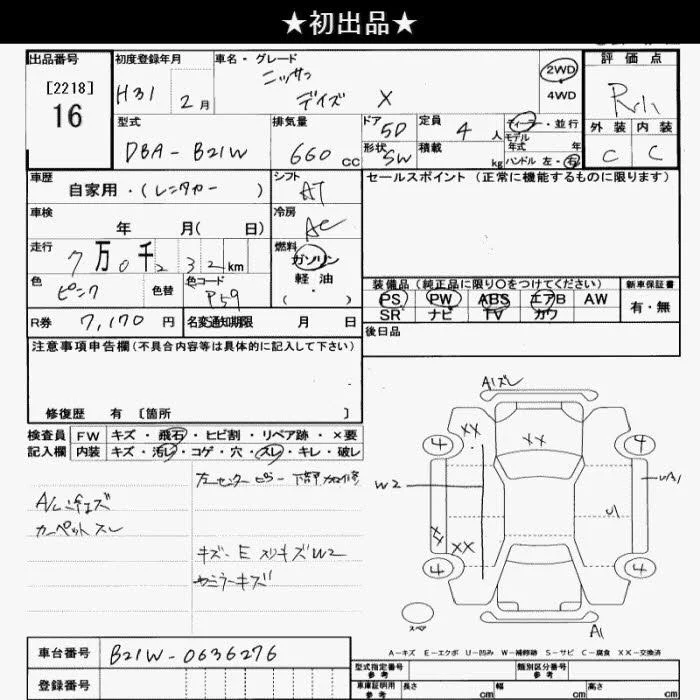 ★初出品★
出品番号
[2218]
16
初度登録年月
H31 2月
車名・グレード
ニッサン
デイズ X
2WD
4WD
評価点
外装 内装
C C
型式
DBA-B21W
排気量
660 cc
ドア 5D
形状 SW
定員 4 人
積載 kg
ディーラー・並行
モデル
年式 年
ハンドル 左・右
車歴
自家用・(レンタカー)
シフト
AT
セールスポイント(正常に機能するものに限ります)
車検
年 月( 日)
冷房
AC
走行
7万0千232km
燃料
ガソリン
軽・油
・( )
色
ピンク
色替
色コード
P59
装備品(純正品に限り○をつけてください)
PS PW ABS エアB AW
SR ナビ TV カワ
新車保証書
有・無
R券 7,170 円
名変通知期限 月 日
後日品
注意事項申告欄(不具合内容等は具体的に記入して下さい)
修復歴 有 〔箇所 〕
検査員
記入欄
FW キズ・飛石・ヒビ割・リペア跡・×要
内装 キズ・汚レ・コゲ・穴・スレ・キレ・破レ
カーペットスレ
左センターピラー下部加修
キズ・E スリキズW2
A1ズレ
XX
XX
4
4
W2
UA1
XX
XX
U1
4
4
スペア
A1
A-キズ E-エクボ U-凹み W-補修跡 S-サビ C-腐食 XX-交換済
車台番号
B21W-0636276
登録番号
型式指定番号
参考
類別区分番号
参考
車庫証明用
参考
長さ cm
幅 cm
高さ cm